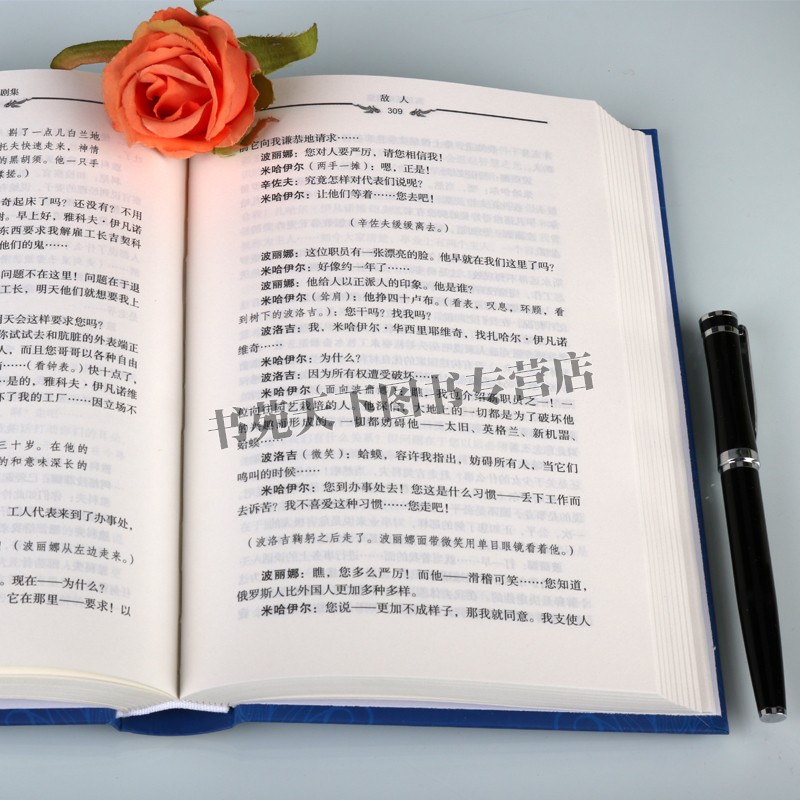 剧集
斟了一点儿白兰地
托夫快速走来，神情
的黑胡须。他一只手
搓。）
奇起床了吗？还没有？不用
谢。早上好，雅科夫·伊凡诺
东西要求我解雇工长吉契科
他们的鬼……
问题不在这里！问题在于退
工长，明天他们就想要我上
明天会这样要求您吗？
你试试去和肮脏的外表端正
人，而且您哥哥以各种自由
（看钟表。）快十点了，
…是的，雅科夫·伊凡诺维
坏了我的工厂……因立场不
三十岁。在他的
的和意味深长的
工人代表来到了办事处，
（波丽娜从左边走来。）
。现在——为什么？
它在那里——要求！以
敌人
309
而它向我谦恭地请求……
波丽娜：您对人要严厉，请您相信我！
米哈伊尔（两手一摊）：嗯，正是！
辛佐夫：究竟怎样对代表们说呢？
米哈伊尔：让他们等着……您去吧！
（辛佐夫缓缓离去。）
波丽娜：这位职员有一张漂亮的脸。他早就在我们这里了吗？
米哈伊尔：好像约一年了……
波丽娜：他给人以正派人的印象。他是谁？
米哈伊尔（耸肩）：他挣四十卢布。（看表，叹息，环顾，看
到树下的波洛吉。）：您干吗？找我吗？
波洛吉：我，米哈伊尔·华西里耶维奇，找扎哈尔·伊凡诺
维奇……
米哈伊尔：为什么？
波洛吉：因为所有权遭受破坏……
米哈伊尔（面向波丽娜）：瞧，我也介绍新职员之一！一
位向往园艺栽培的人。他深信，大地上的一切都是为了破坏他
的人的而形成的。一切都妨碍他——太阳、英格兰、新机器、
蛤蟆……
波洛吉（微笑）：蛤蟆，容许我指出，妨碍所有人，当它们
鸣叫的时候……
米哈伊尔：您到办事处去！您这是什么习惯——丢下工作而
去诉苦？我不喜爱这种习惯……您走吧！
（波洛吉鞠躬之后走了。波丽娜面带微笑用单目眼镜看着他。）
波丽娜：瞧，您多么严厉！而他——滑稽可笑……您知道，
俄罗斯人比外国人更加多种多样。
米哈伊尔：您说——更加不成样子，那我就同意。我支使人
书苑天下图书专营店